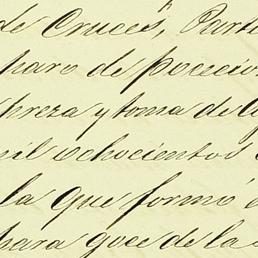 de Cruces, Parti
paro de pocecio
preza y toma de
mil ochocientos
la que formó é
para goce de la